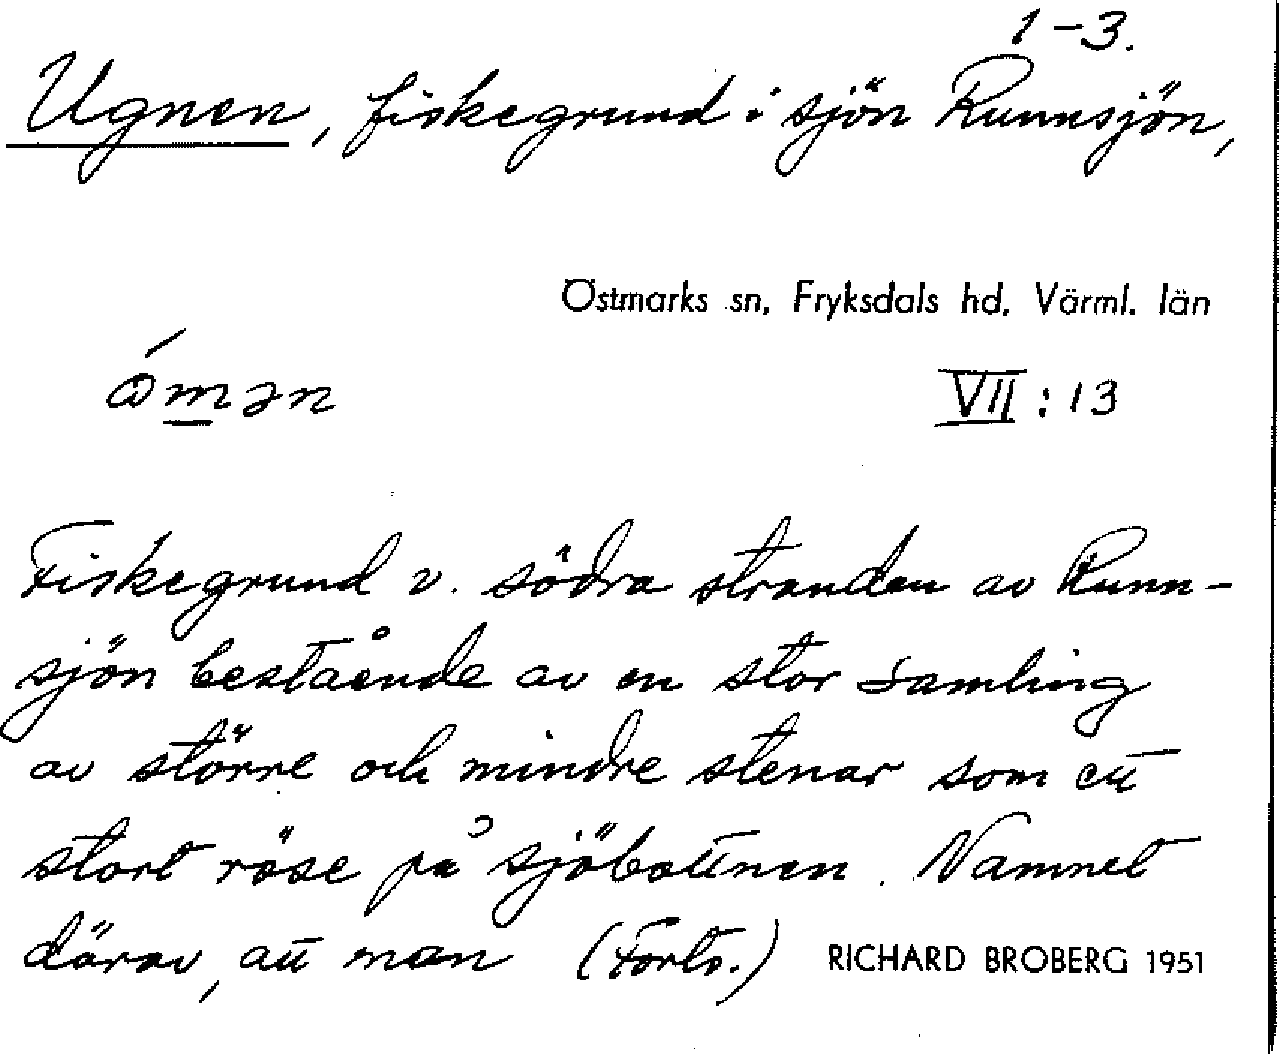 1-3.
Ugnen, fiskegrund i sjön Runnsjön,
Östmarks sn, Fryksdals hd. Värml. län
VII:13
Fiskegrund v. södra stranden av Runn-
sjön bestående av en stor samling
av större och mindre stenar som ett
stort röse på sjöbottnen. Namnet
därav, att man (Forts.)
RICHARD BROBERG 1951